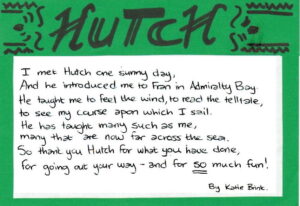 HUTCH
I met Hutch one sunny day,
And he introduced me to Fran in Admiralty Bay.
He taught me to feel the wind, to read the telltale,
to see my course apon which I sail.
He has taught many such as me,
many that are now far across the sea.
So thank you Hutch for what you have done,
for going out your way - and for so much fun!
By Katie Brink.